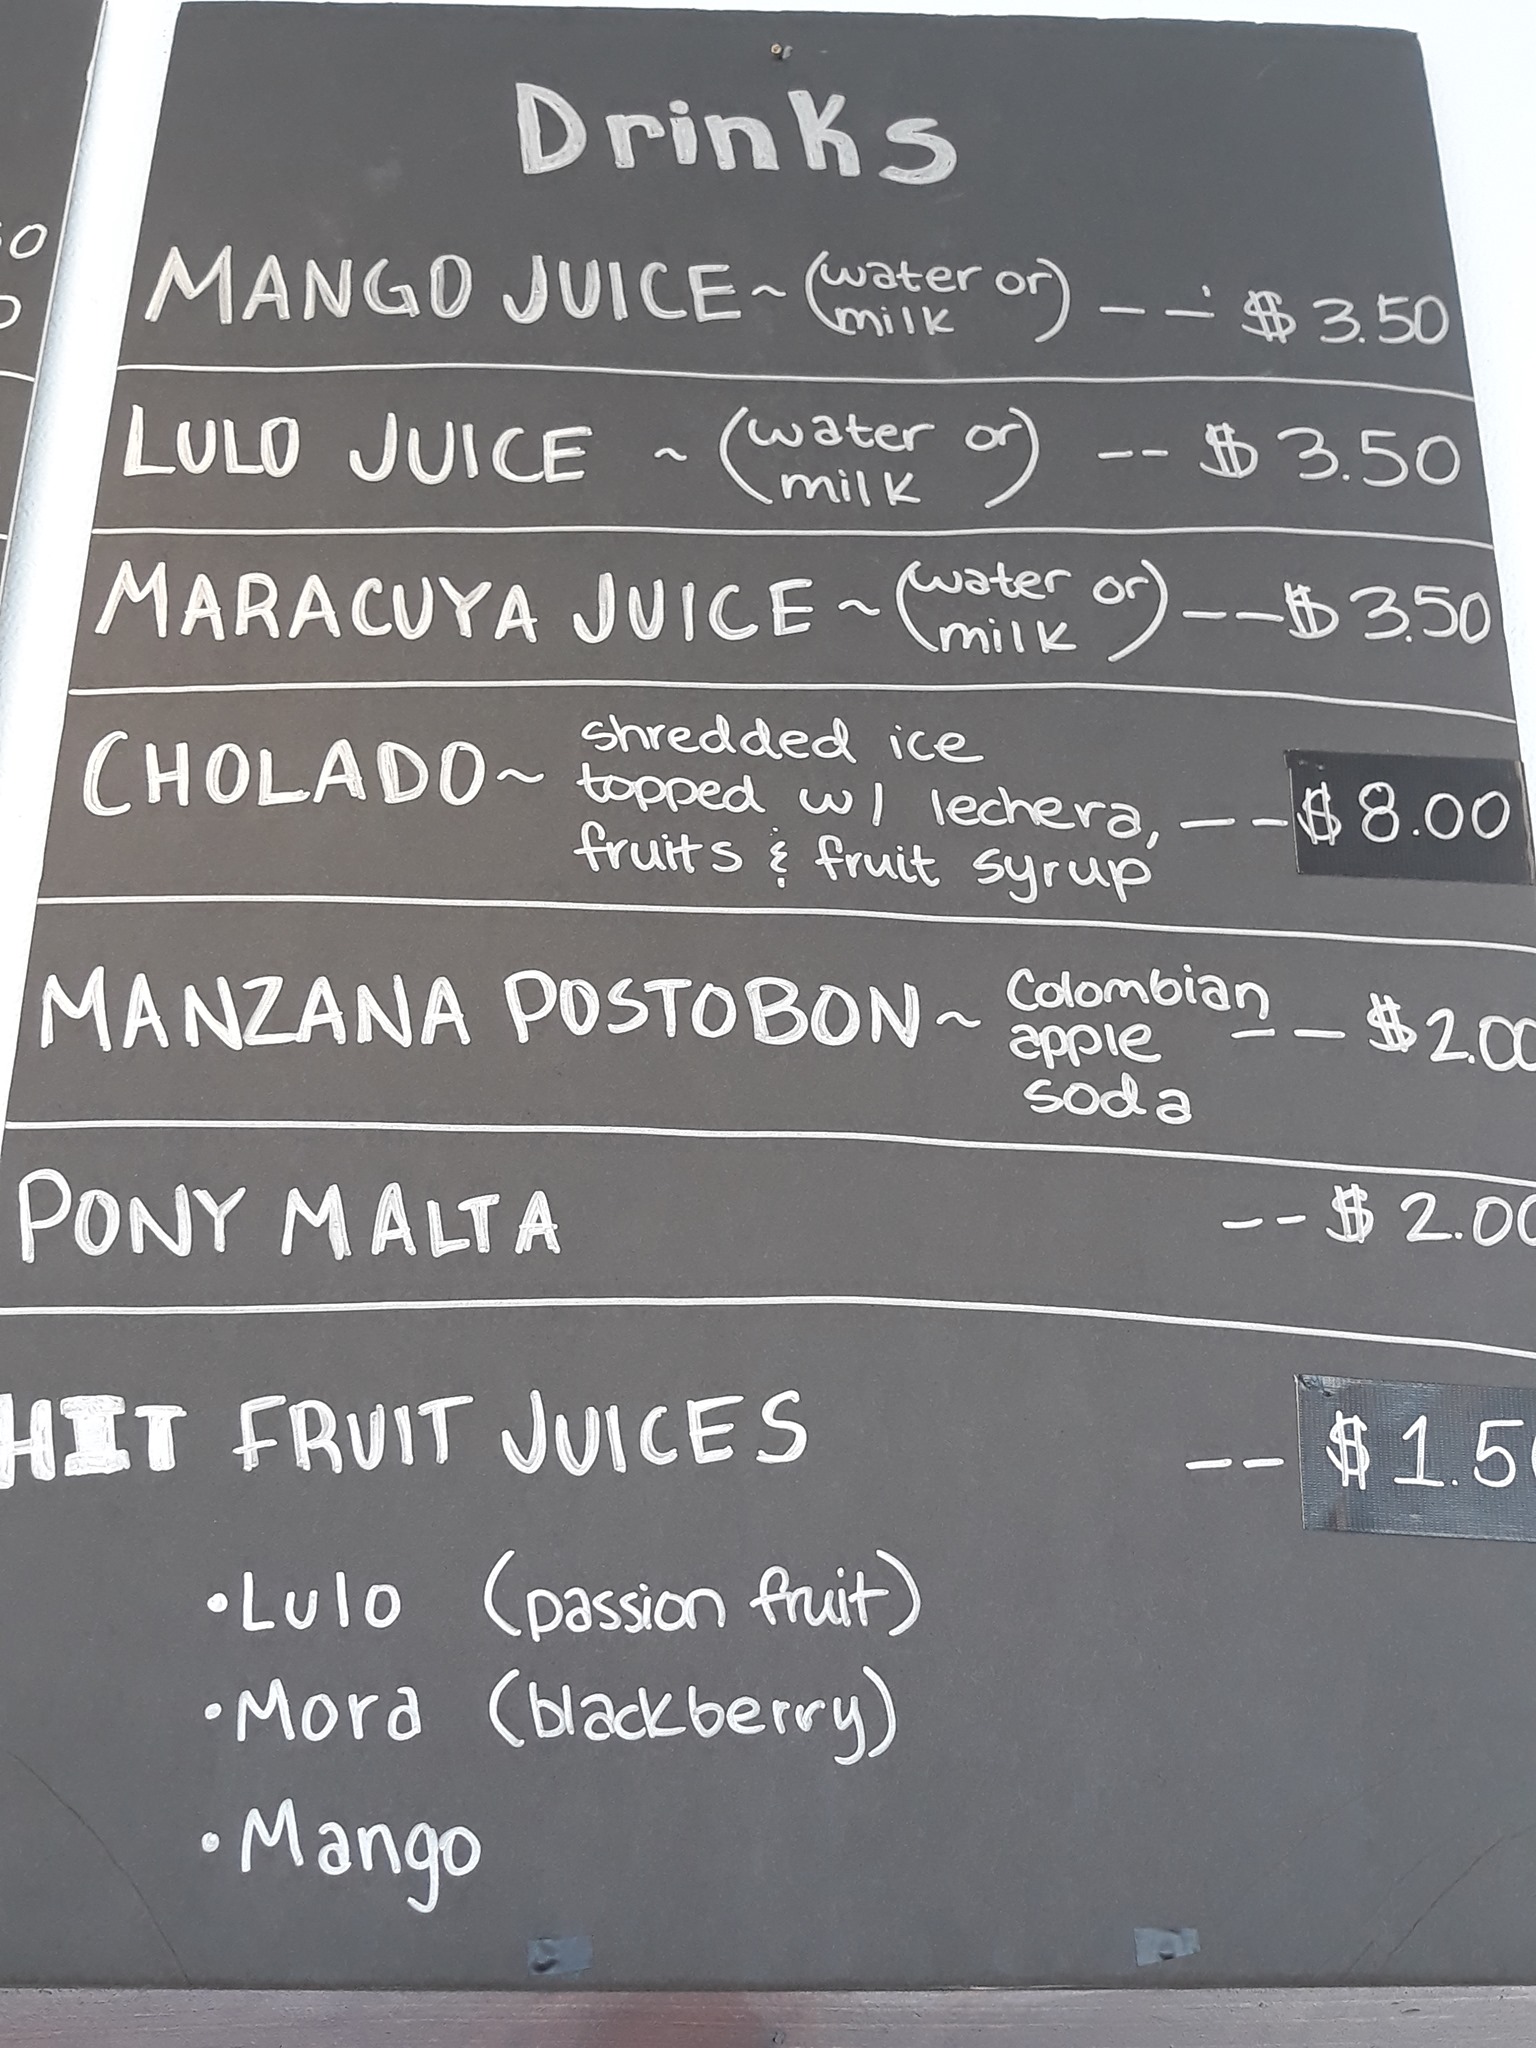 Drinks
MANGO JUICE ~ (water or milk) --- $3.50
LULO JUICE ~ (water or milk) -- $3.50
MARACUYA JUICE ~ (water or milk) -- $3.50
CHOLADO ~ shredded ice
topped w/ lechera, -- $8.00
fruits & fruit syrup
MANZANA POSTOBON ~ Colombian
apple -- $2.00
soda
PONY MALTA -- $2.00
HIT FRUIT JUICES -- $1.50
• Lulo (passion fruit)
• Mora (blackberry)
• Mango